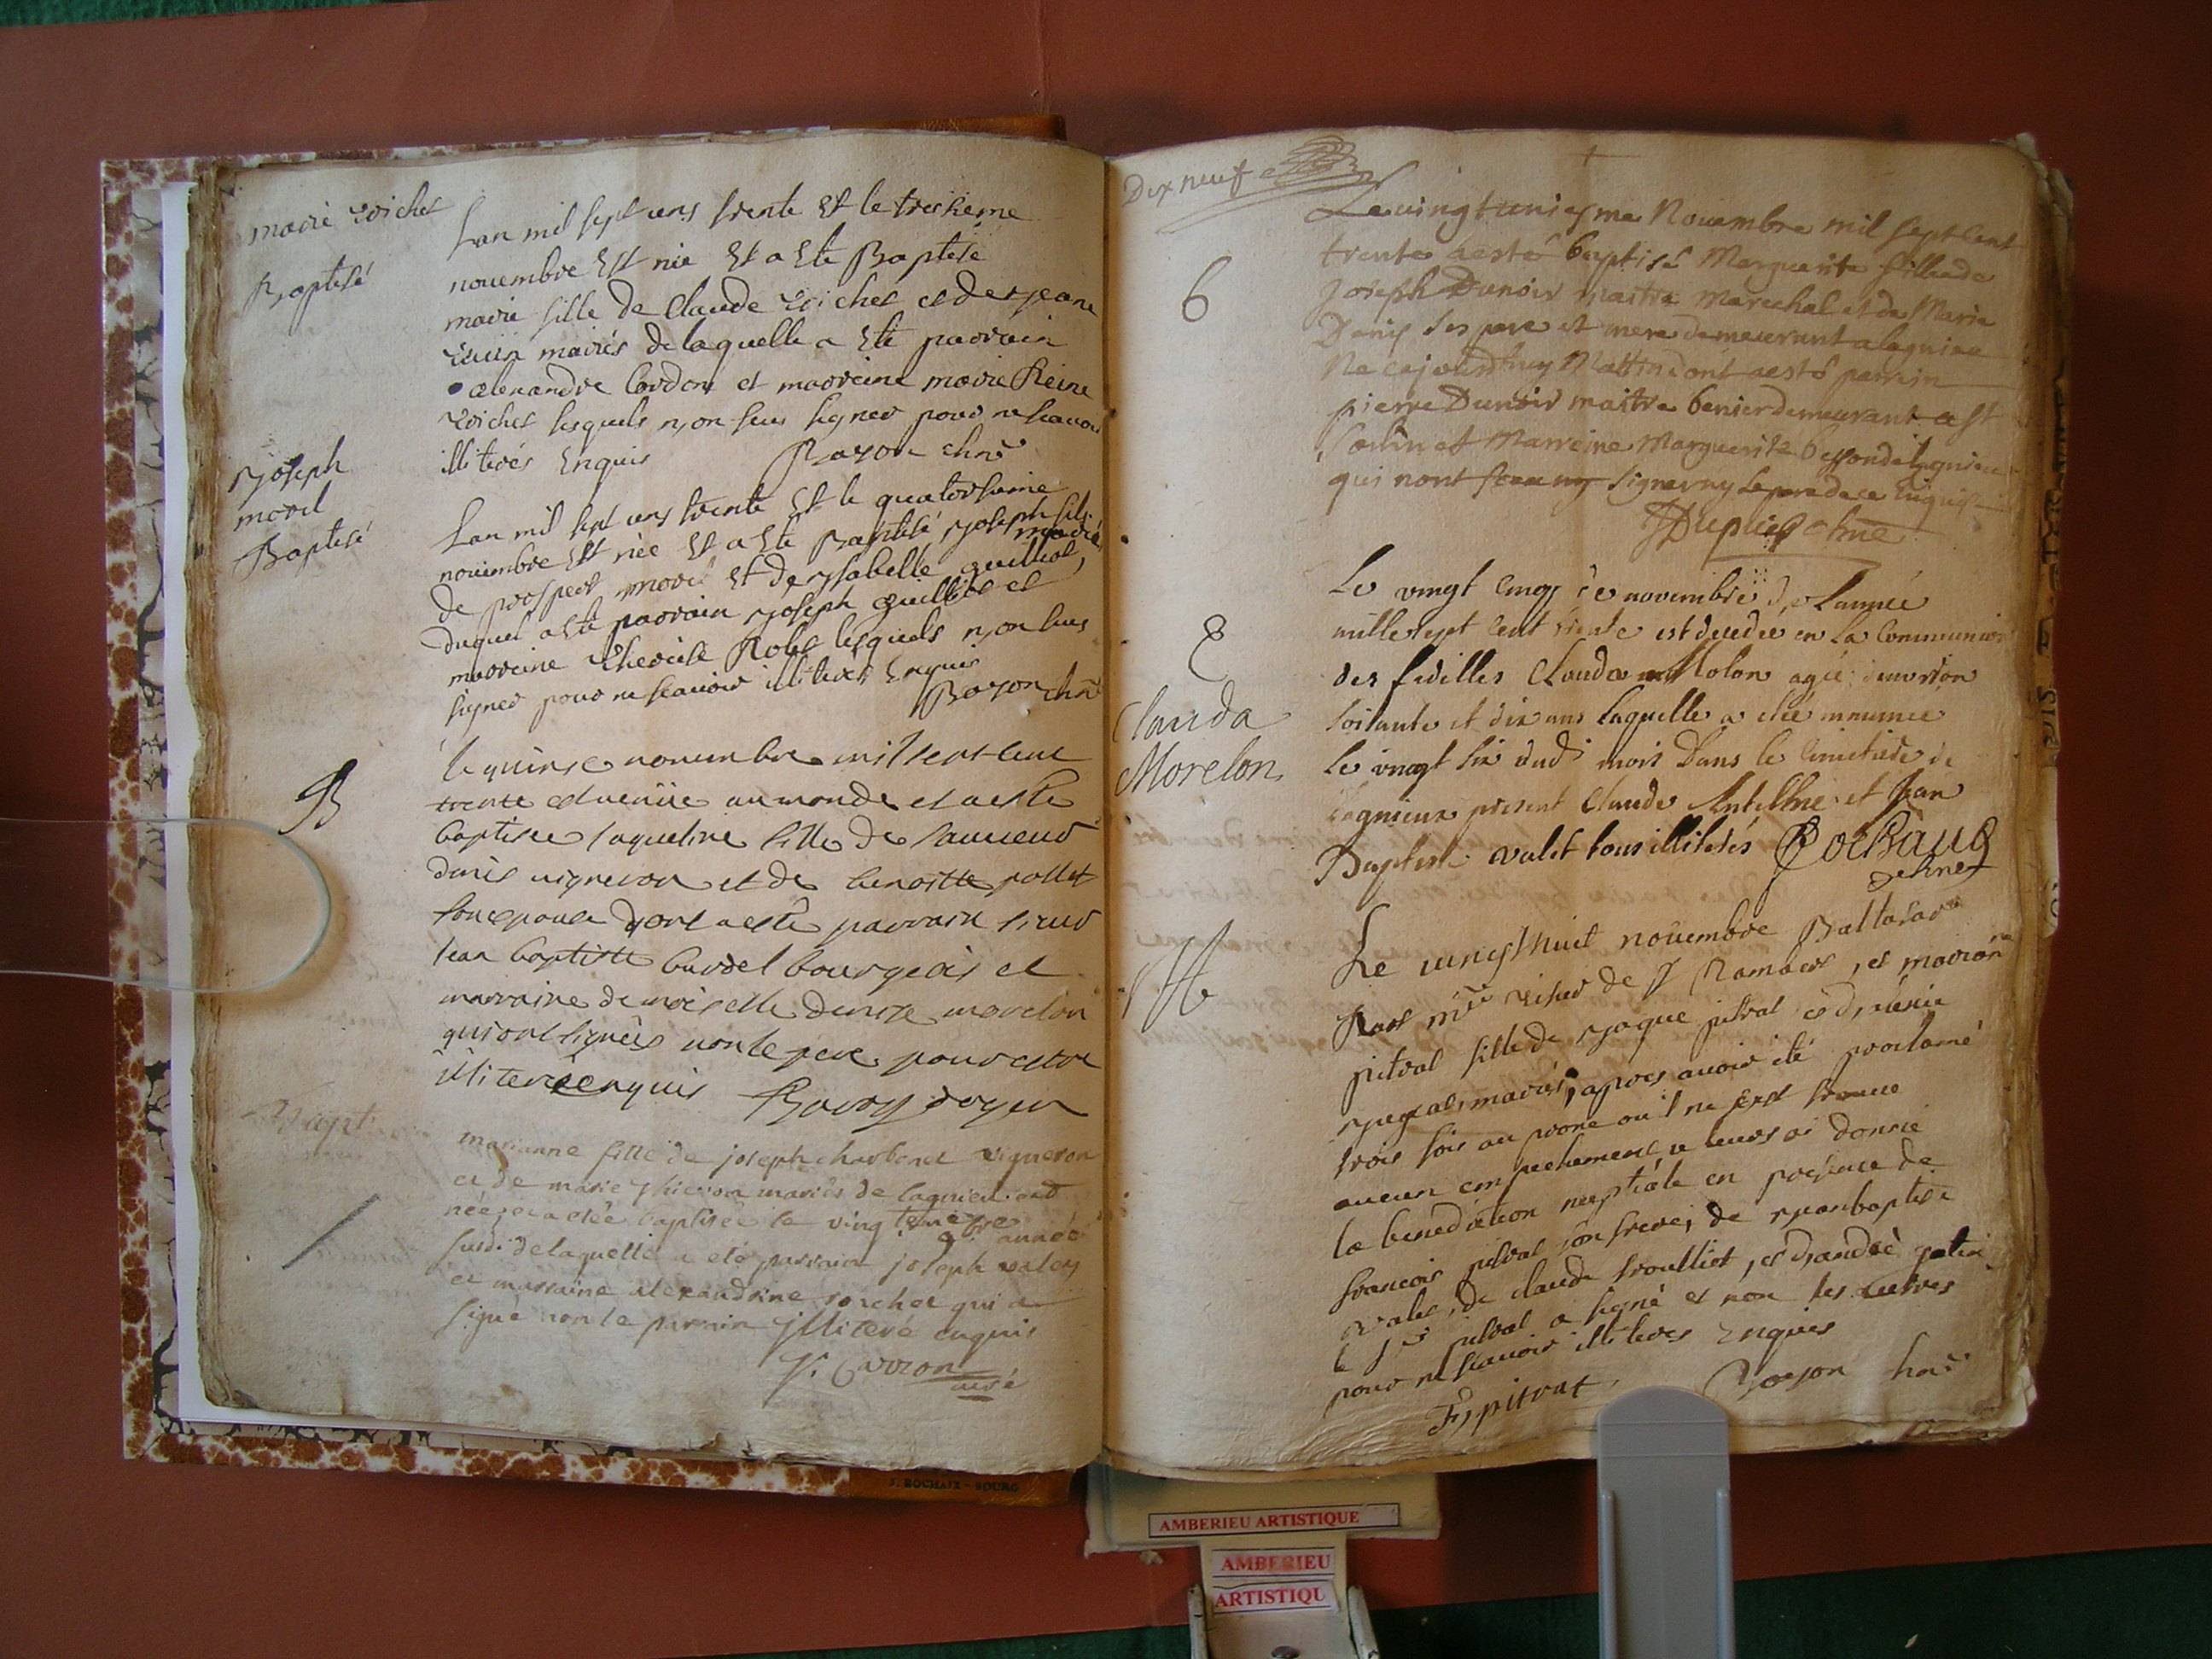 marie Voichet
Baptisé
Lan mil sept cens trente Et le treisieme
novembre Est née Et a Eté Baptisé
marie fille de Claude Voichet et de jeane
mariés de laquelle a Eté parrain
alexandre Cordon et marreine marie Reine
Voichet lesquels n'on sceu signer pour ne scavoir
illiterés Enquis Bayon chne
joseph
morel
Baptisé
Lan mil sept cens trente Et le quatorsieme
novembre Est née Et a Eté Baptisé joseph fils
de prosper morel Et de ysabelle guilliot mariés,
duquel a Eté parrain joseph guilliot et
marreine Therèse Rolet lesquels n'on sceu
signer pour ne scavoir illiterés Enquis
Bayon chne
B
le quinse novembre mil sept cent
trente est venüe au monde et a esté
baptisee jaqueline fille de
denis vigneron et de benoitte pollet
son epouse dont a esté parrain sieur
jean baptiste burdel bourgeois et
marraine demoiselle denise morelon
qui ont signés non le pere pour estre
illiteré enquis Bavoy doyen
Bapt
marianne fille de joseph charbonet vigneron
et de marie Thievon mariés de lagnieu est
née, et a etée baptisée le vingtieme 9bre année
susd. de laquelle a eté parrain joseph valey
et marraine alexandrine rorchet qui a
signé non le parrain illiteré enquis
Carron
curé
Dix neuf
Le vingt uniesme Novembre mil sept cent
trente a esté baptisé Marguerite fille de
Joseph Dunoir maitre marechal et de Marie
Denis ses pere et mere demeurant a lagnieu
Née cejourdhuy Matin dont a esté parrein
pierre Dunoir maitre demeurant a St
Sorlin et Marreine Marguerite Besson de lagnieu
qui nont sceu ny signer ny le pere de ce enquis
Dupuis chne
6
Le vingt cinq de novembre de l'année
mille sept cent trente est decedee en la Communion
des fidelles Clauda Molon agée denviron
soixante et dix ans laquelle a etée inhumée
le vingt six dud mois Dans le Cimetiere de
Lagnieux present Claude Antelme et Jean
Baptiste valet tous illiterés Cochaud
chne
8
Clauda
Morelon
Le vingthuit novembre Baltasard
Ravs de St Rambert, et marion
pitrat fille de jaque pitrat
mariés, apres avoir eté proclamé
trois fois au prone ou il ne sest trouvé
aucun empechement je leurs ai donné
la benediction nuptiale en presence de
francois pitrat son frere, de jean baptiste
valet, de claude trouilliet, et d'andré
le Sr pitrat a signé et non les autres
pour ne scavoir illiteres Enquis
Fs pitrat Bayon chne
J. ROCHAIX - BOURG
AMBERIEU ARTISTIQUE
AMBERIEU
ARTISTIQU